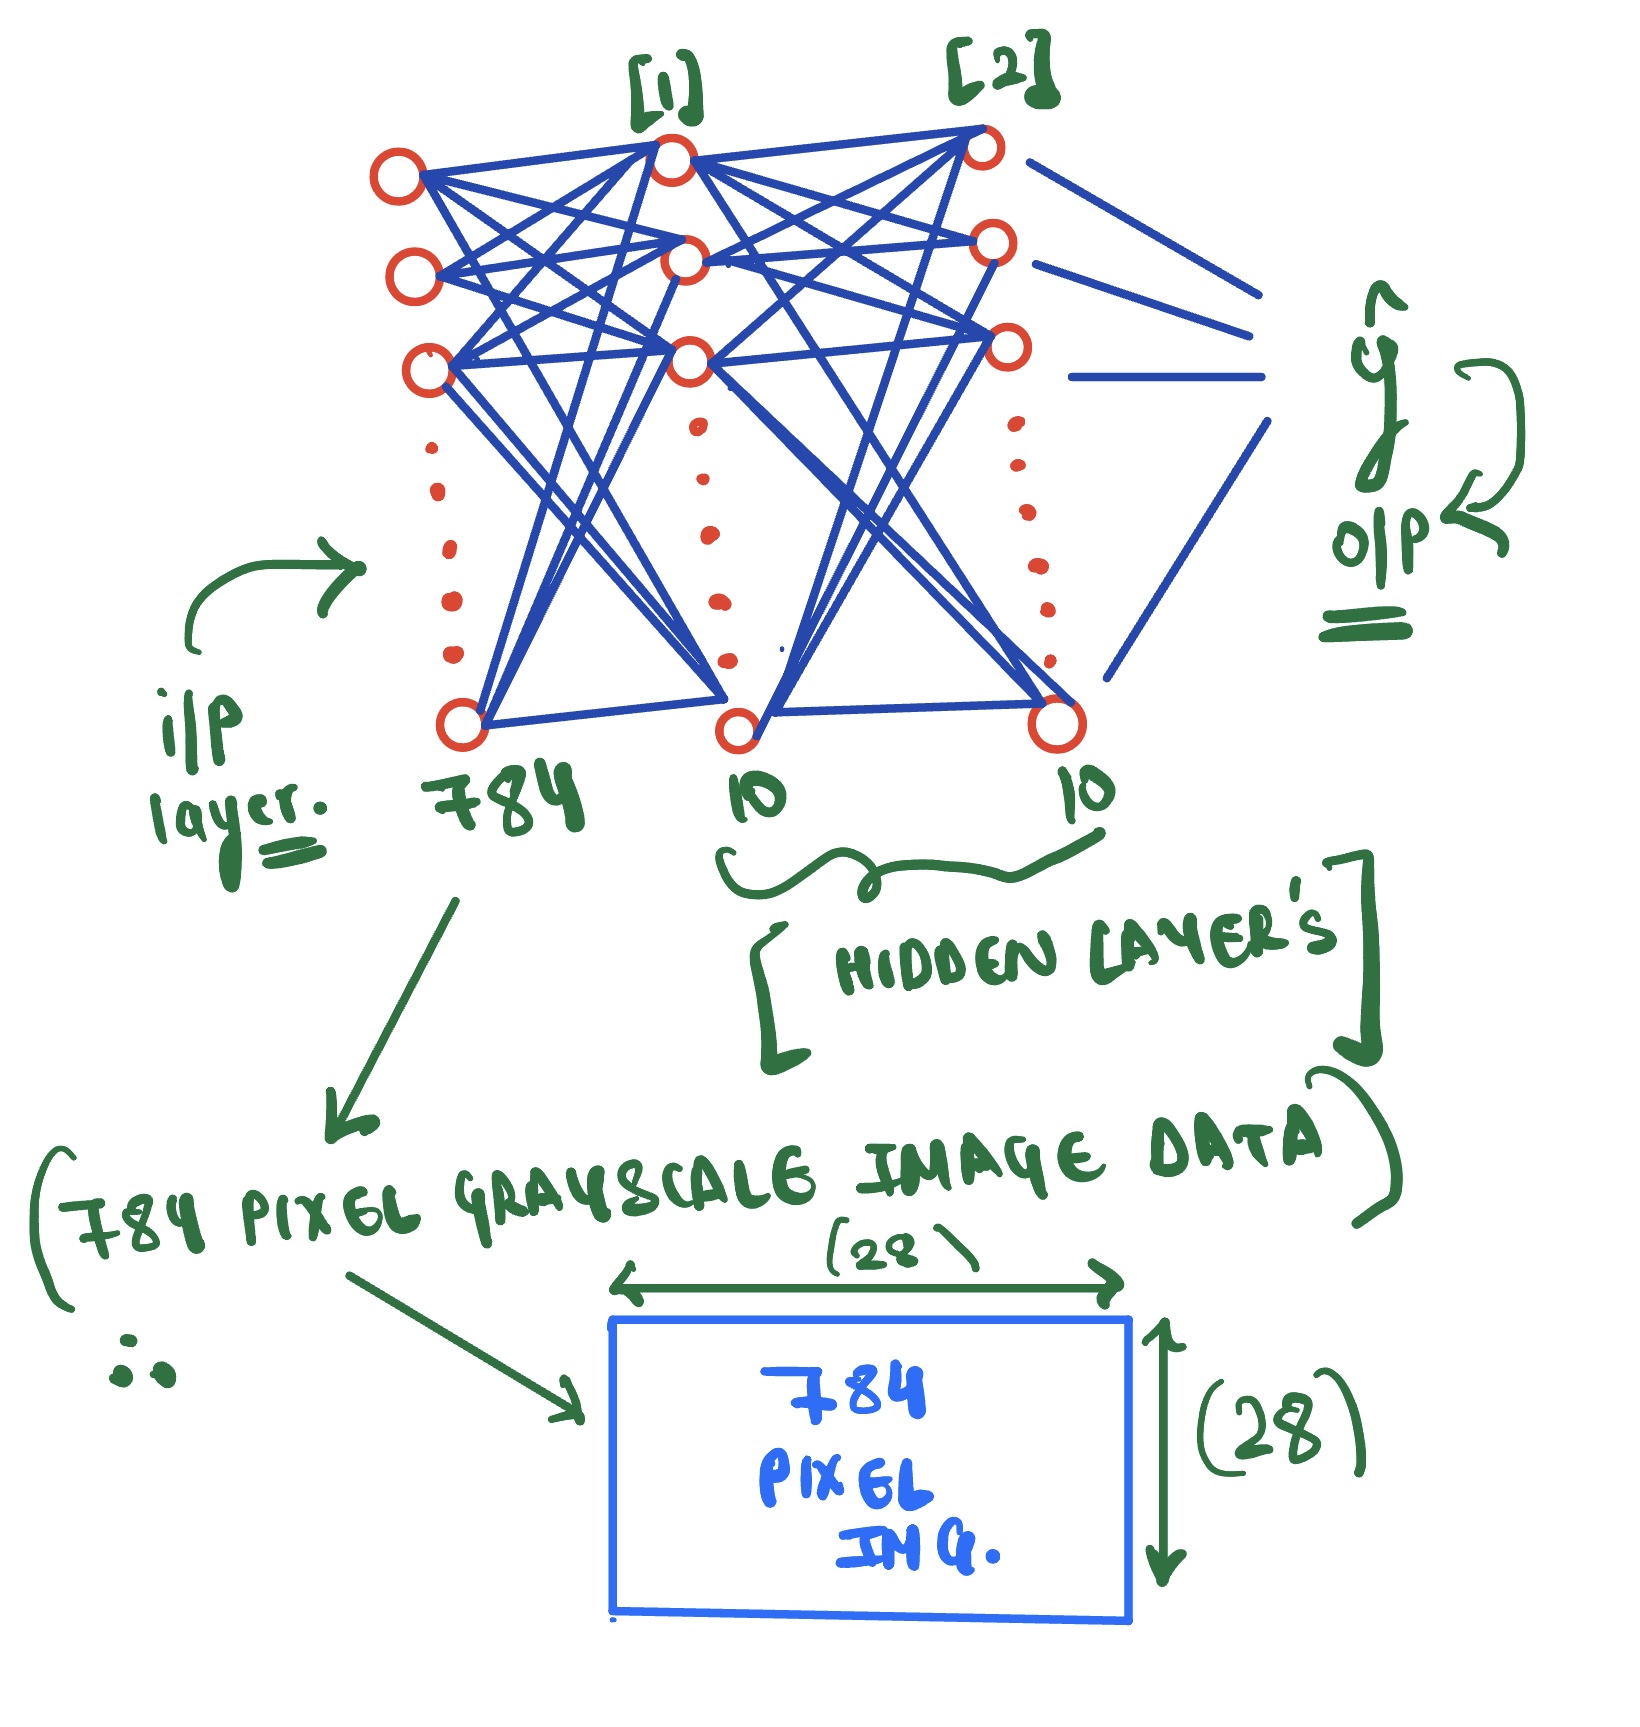 [1]
[2]
ŷ
o|p
i|p
layer.
784
10
10
[HIDDEN LAYER'S]
(784 PIXEL GRAYSCALE IMAGE DATA)
∴
(28)
784
PIXEL
IMG.
(28)